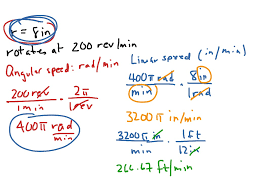 r = 8in
rotates at 200 rev/min
Angular speed: rad/min
200 rev / 1 min · 2π / 1 rev
400π rad/min
Linear speed (in/min)
400π rad / min · 8in / 1 rad
3200π in/min
3200π in / min · 1ft / 12in
266.67 ft/min